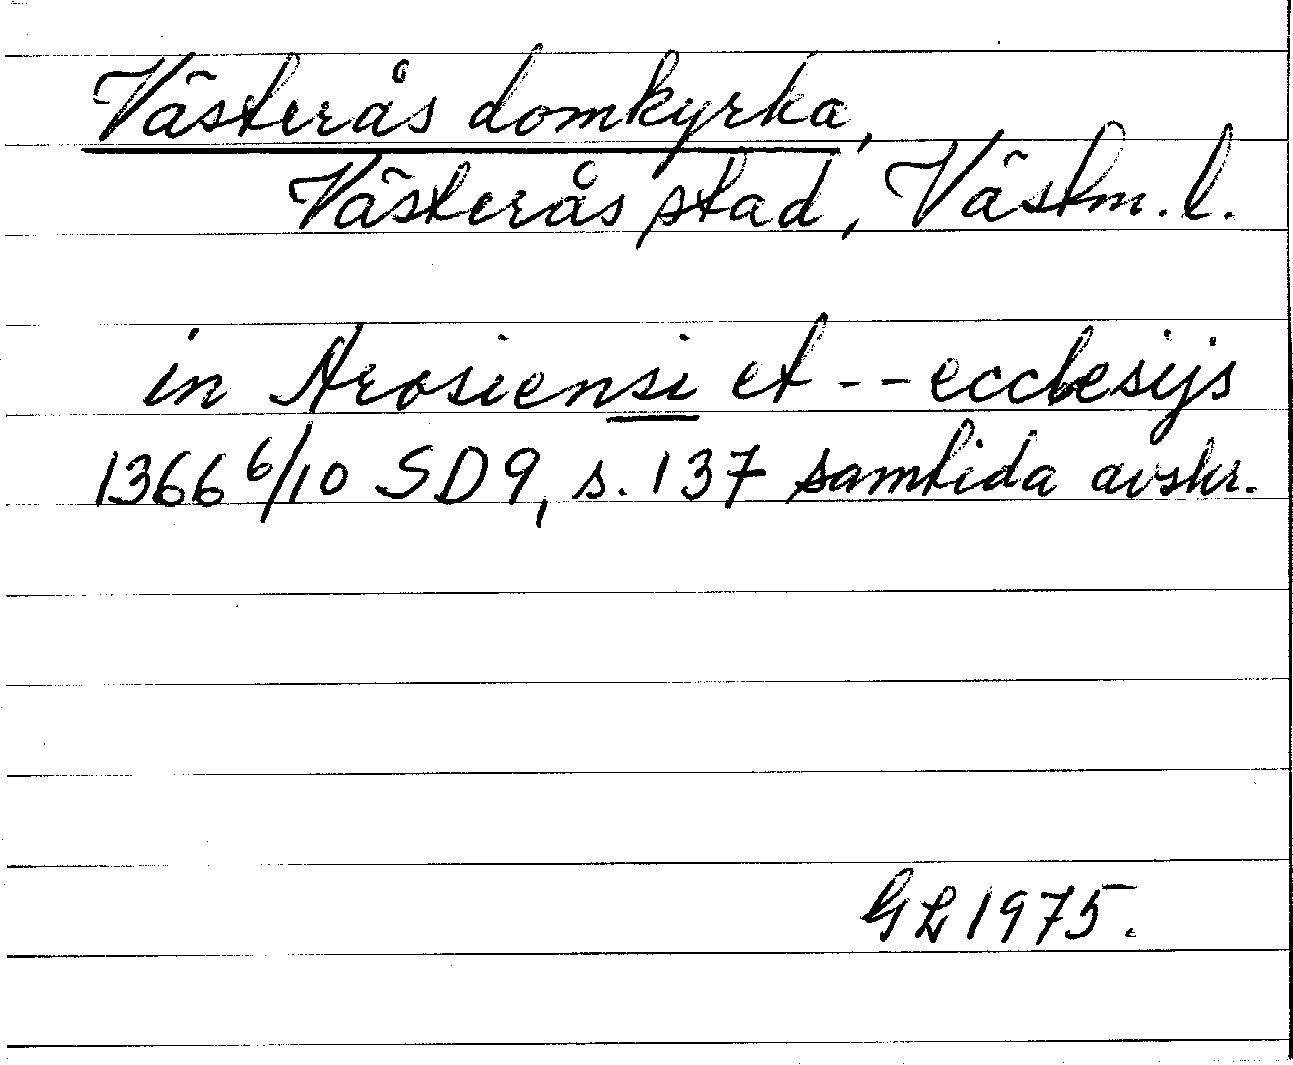 Västerås domkyrka,
Västerås stad, Västm. l.
in Arosiensi et -- ecclesijs
1366 6/10 SD 9, s. 137 samtida avskr.
GL 1975.